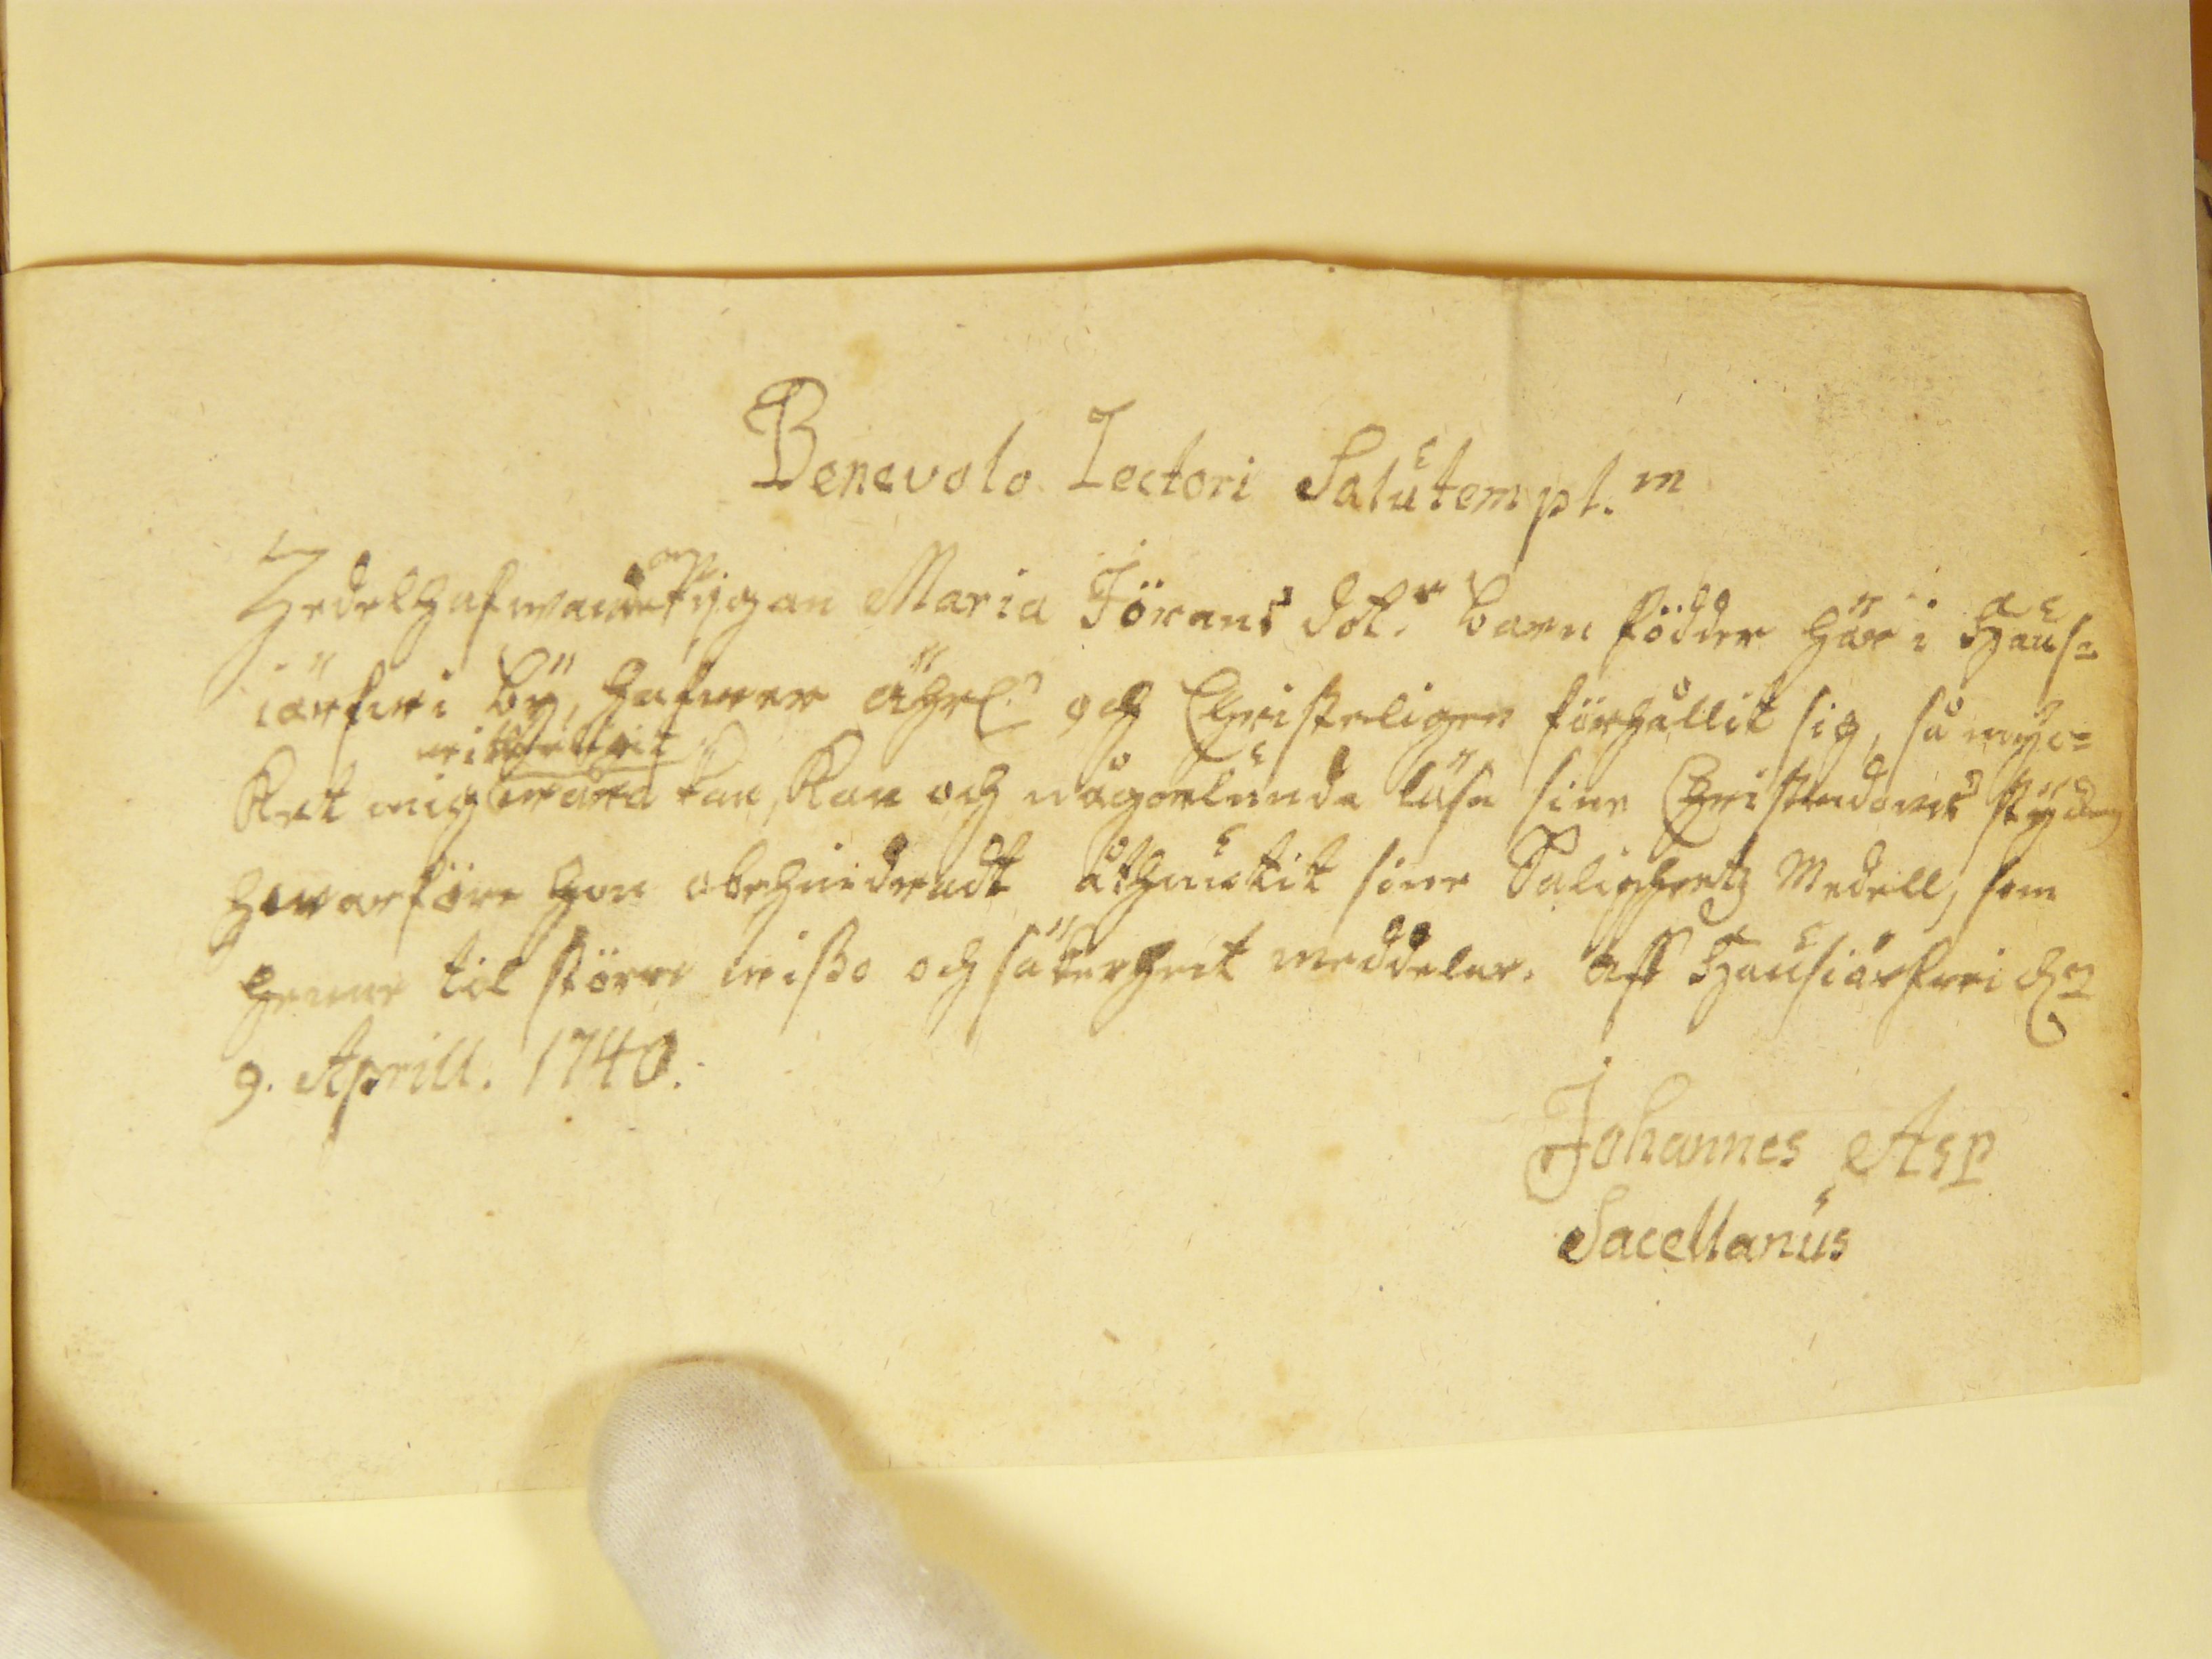 Benevolo Lectori Salutem pl.m
Zedelhafwande Pijgan Maria Jörans dot.r barn födder här i Hausi
iärfwi by, hafwer ährl. och Christeligen förhållit sig, så myc=
ket mig witterligit wara kan, Kan och någorlunda läsa sine Christendoms stycken
hwarföre hon obehindradt åthniutit sine Salighetz Medell, som
henne til större wisso och säkerhet meddelar. Aff Hausiärfwi d.
9. Aprill. 1740.
Johannes Asp
Sacellanus